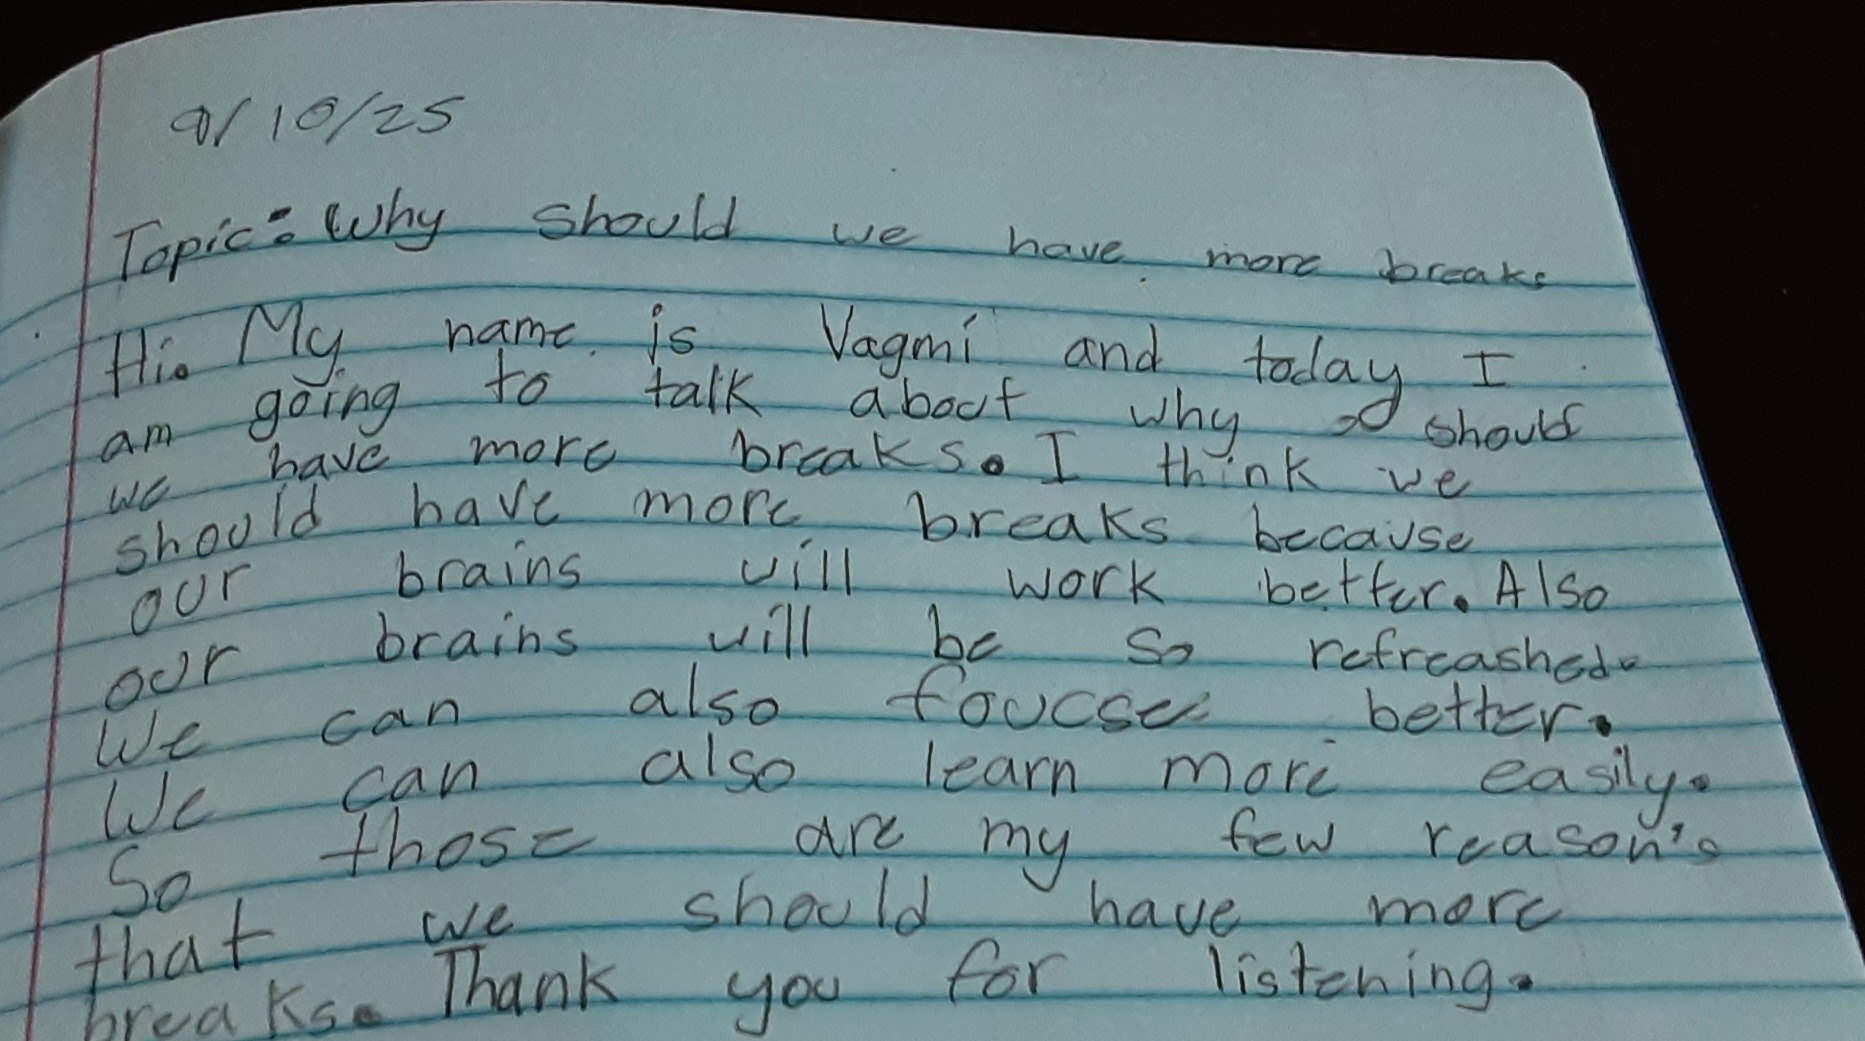 9/10/25
Topic: Why should we have more breaks
Hi. My name is Vagmi and today I
am going to talk about why should
we have more breaks. I think we
should have more breaks because
our brains will work better. Also
our brains will be so refreashed.
We can also foucse better.
We can also learn more easily.
So those are my few reason's
that we should have more
breaks. Thank you for listening.